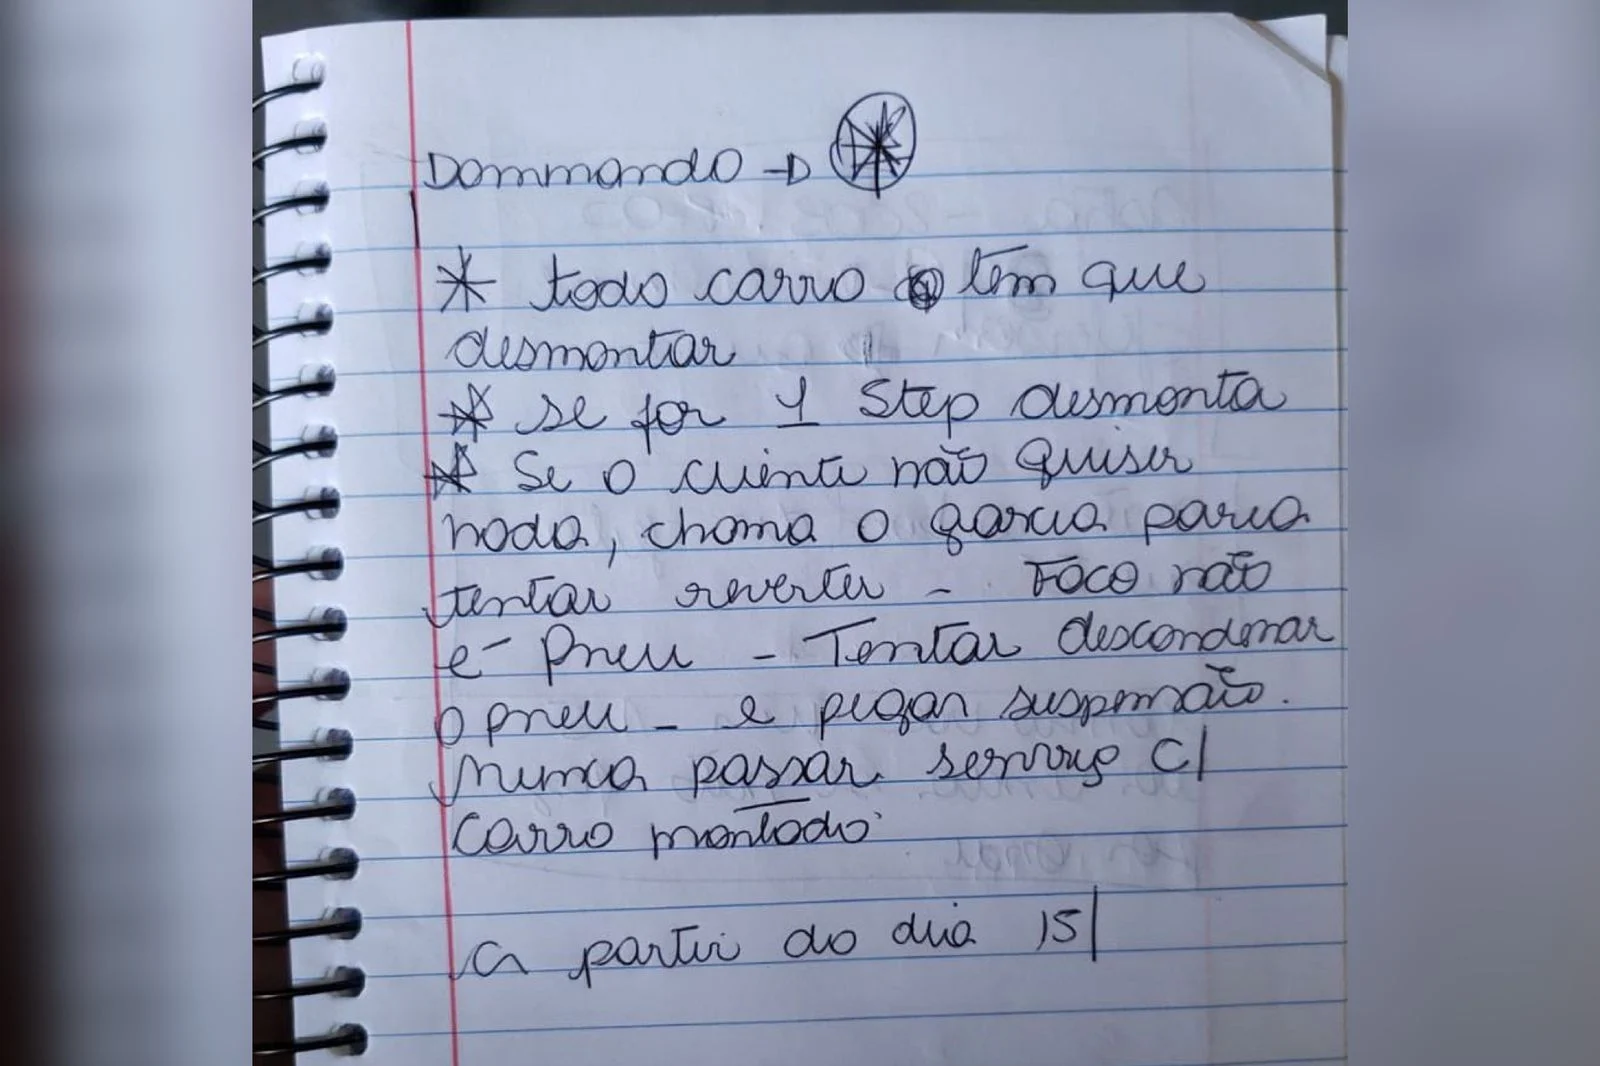 Dommando
* todo carro tem que
desmontar
* se for 1 Step desmonta
* Se o cliente não quiser
nada, chama o garcia para
tentar reverter - Foco não
é Pneu - Tentar descondenar
o pneu - e pegar suspensão.
Nunca passar serviço C/
carro montado
a partir do dia 15/